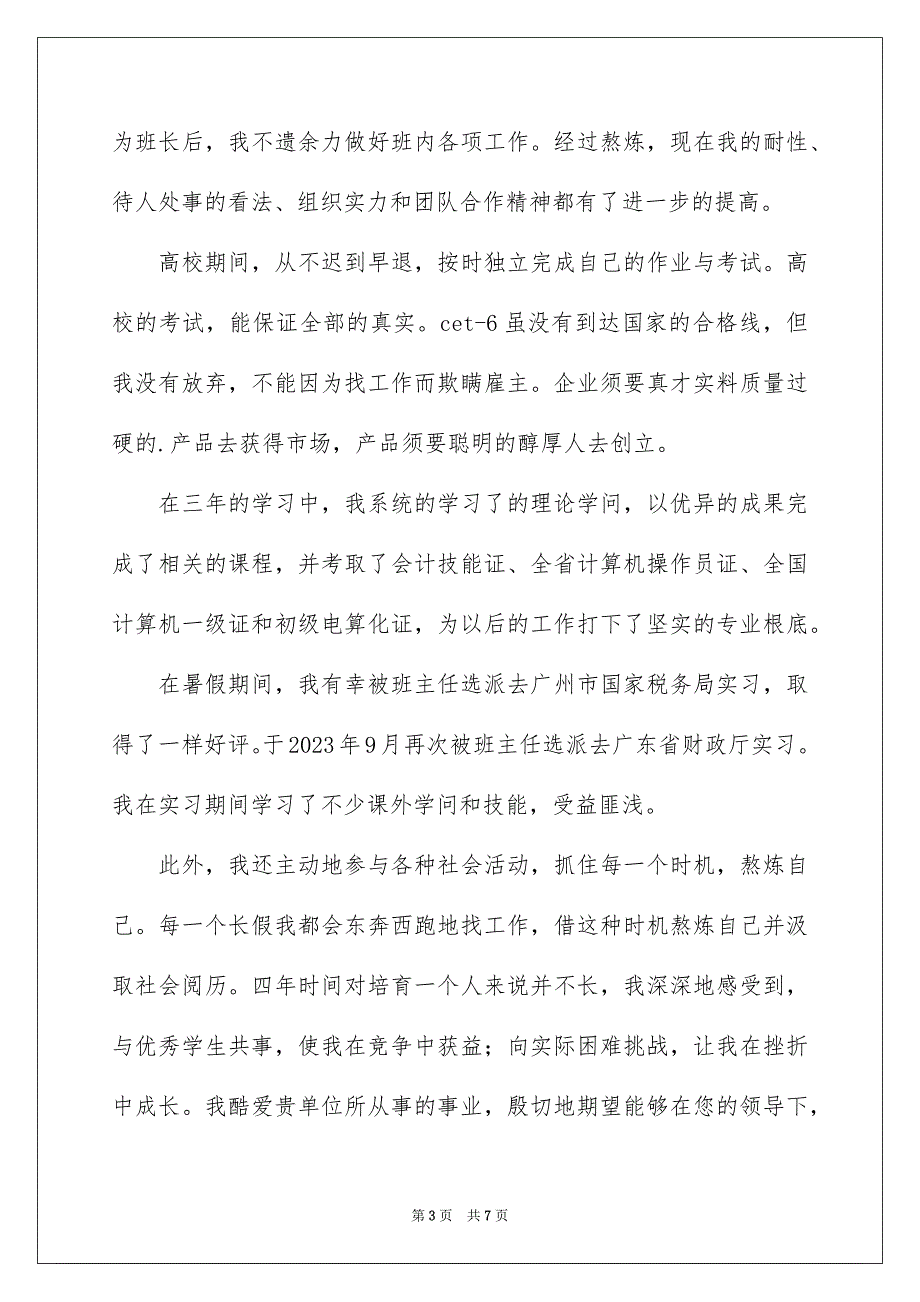 为班长后，我不遗余力做好班内各项工作。经过熬炼，现在我的耐性、
待人处事的看法、组织实力和团队合作精神都有了进一步的提高。
高校期间，从不迟到早退，按时独立完成自己的作业与考试。高
校的考试，能保证全部的真实。cet-6 虽没有到达国家的合格线，但
我没有放弃，不能因为找工作而欺瞒雇主。企业须要真才实料质量过
硬的.产品去获得市场，产品须要聪明的醇厚人去创立。
在三年的学习中，我系统的学习了的理论学问，以优异的成果完
成了相关的课程，并考取了会计技能证、全省计算机操作员证、全国
计算机一级证和初级电算化证，为以后的工作打下了坚实的专业根底。
在暑假期间，我有幸被班主任选派去广州市国家税务局实习，取
得了一样好评。于 2023 年 9 月再次被班主任选派去广东省财政厅实习。
我在实习期间学习了不少课外学问和技能，受益匪浅。
此外，我还主动地参与各种社会活动，抓住每一个时机，熬炼自
己。每一个长假我都会东奔西跑地找工作，借这种时机熬炼自己并汲
取社会阅历。四年时间对培育一个人来说并不长，我深深地感受到，
与优秀学生共事，使我在竞争中获益；向实际困难挑战，让我在挫折
中成长。我酷爱贵单位所从事的事业，殷切地期望能够在您的领导下，
第 3 页 共 7 页